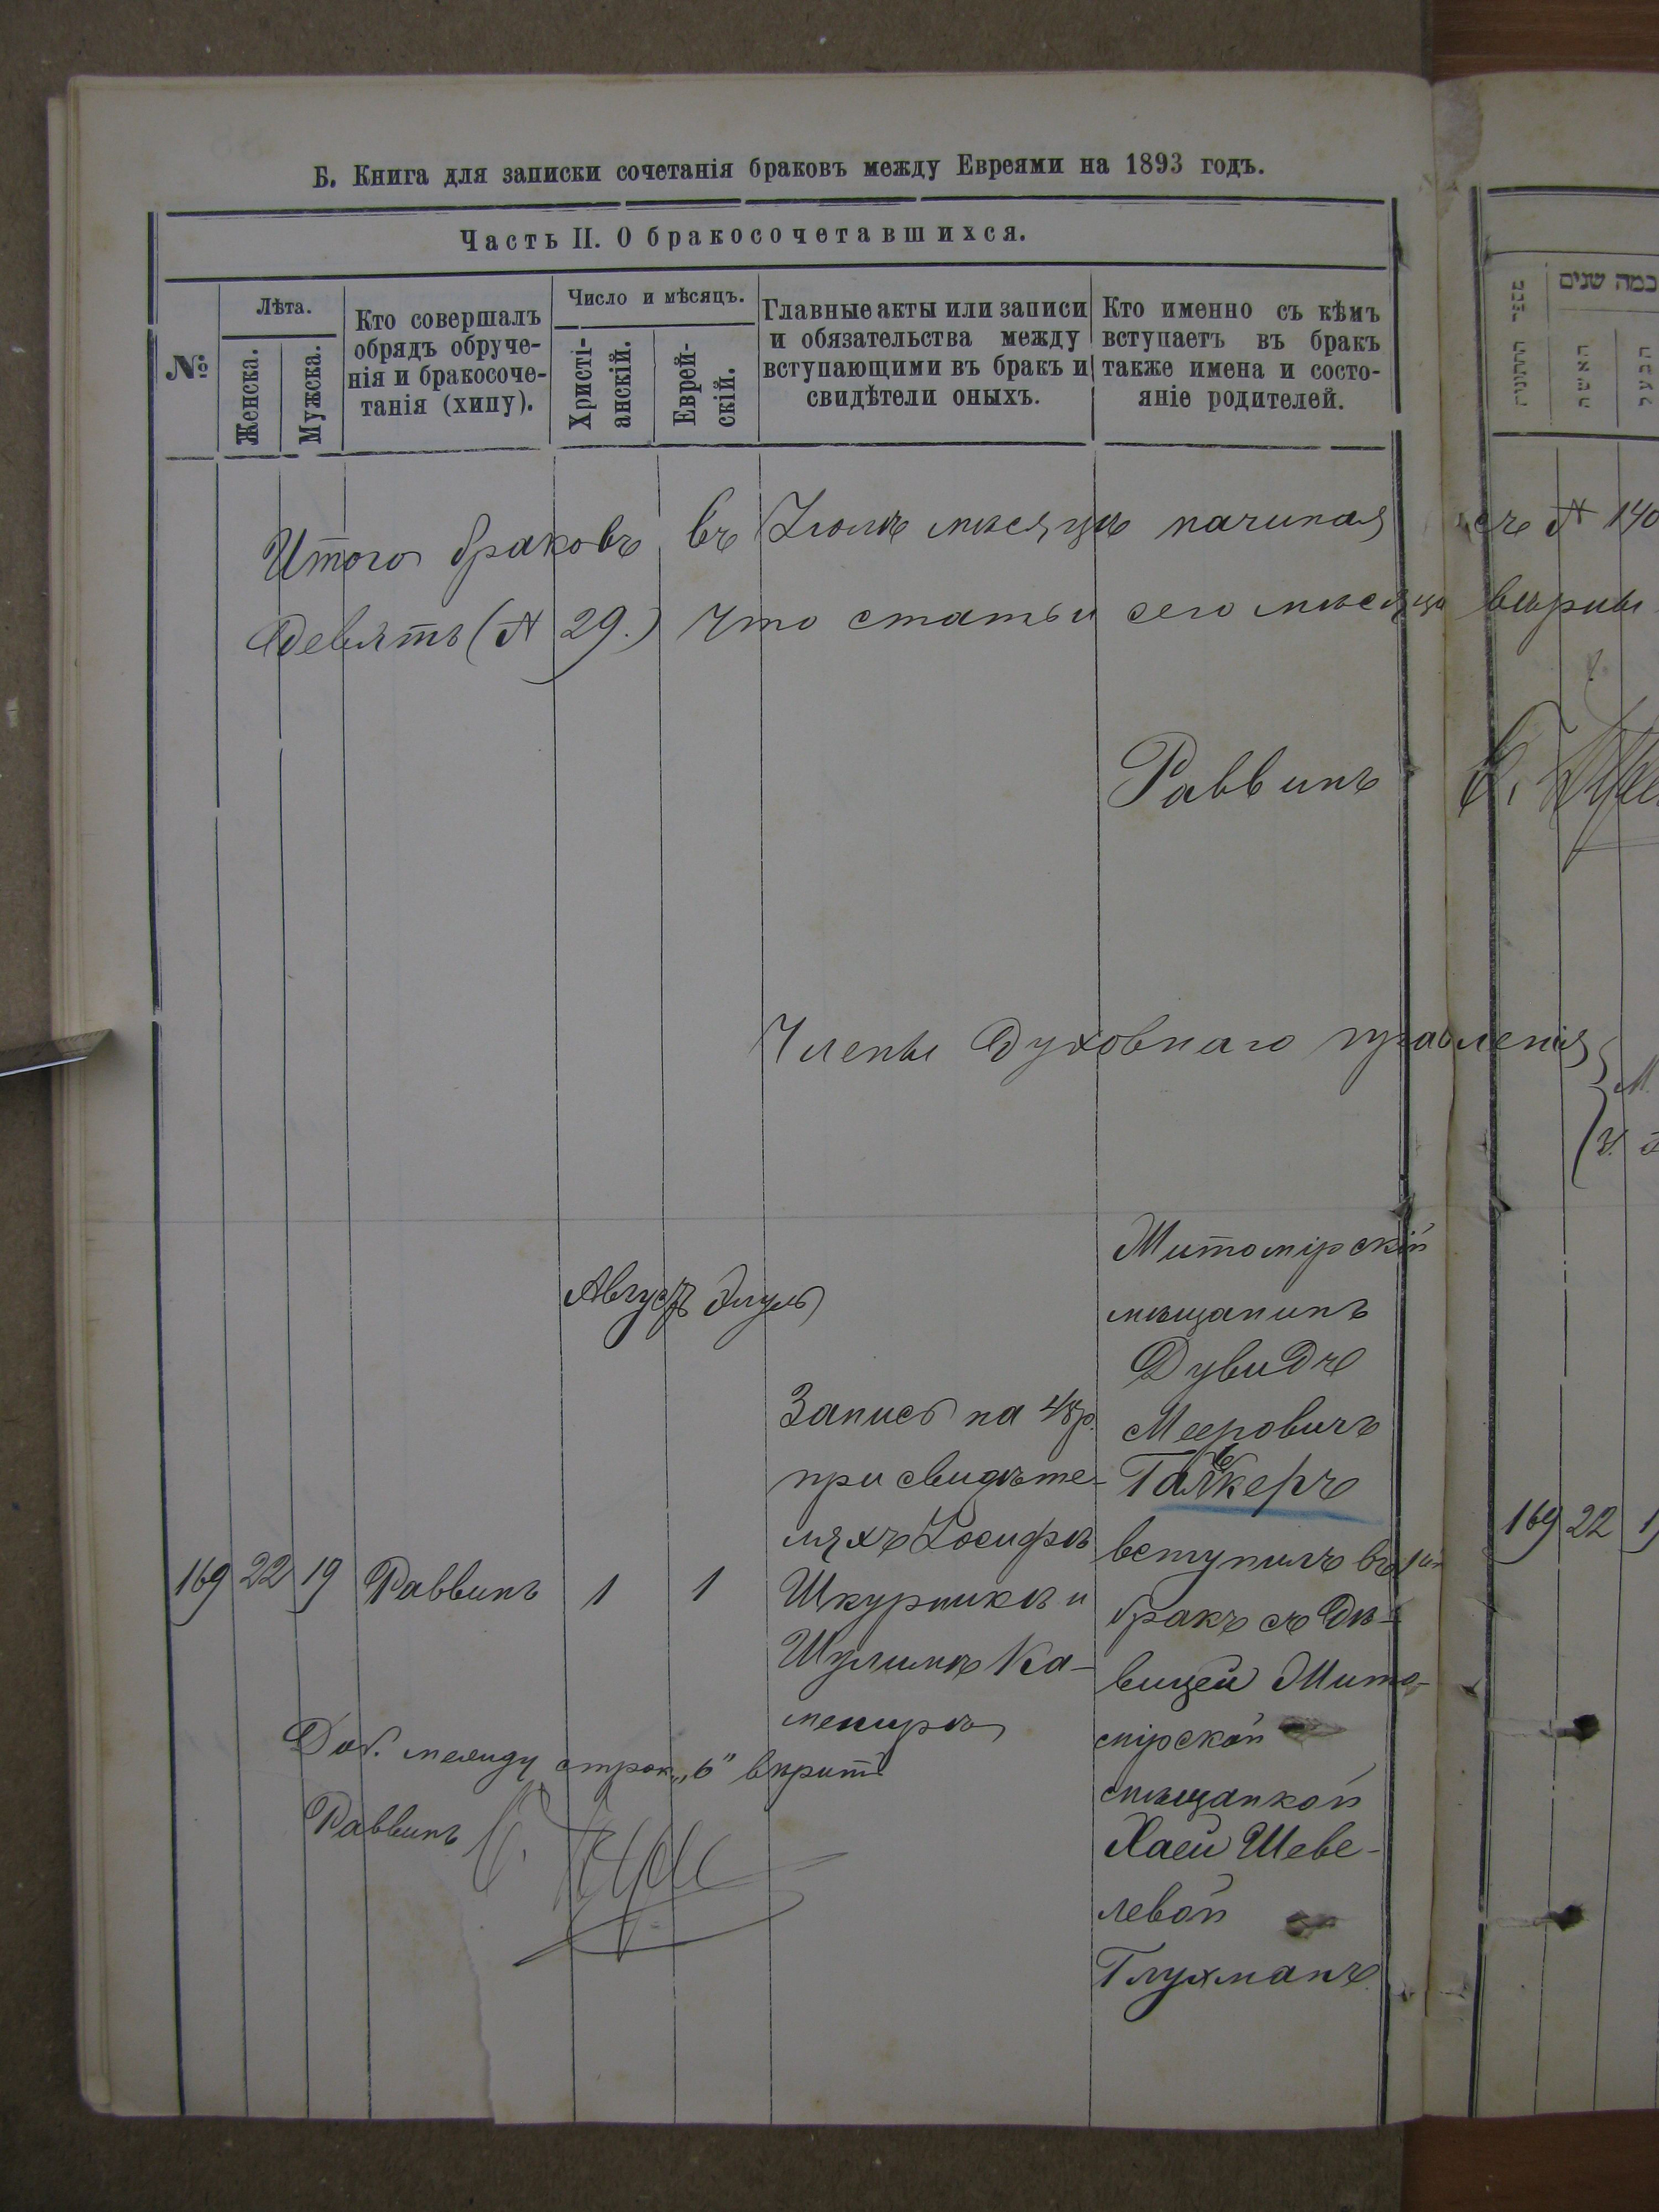 Б. Книга для записки сочетанія браковъ между Евреями на 1893 годъ.
Часть II. О бракосочетавшихся.
№
Лѣта.
Женска.
Мужска.
Кто совершалъ
обрядъ обруче-
нія и бракосоче-
танія (хипу).
Число и мѣсяцъ.
Христі-
анскій.
Еврей-
скій.
Главные акты или записи
и обязательства между
вступающими въ бракъ и
свидѣтели оныхъ.
Кто именно съ кѣмъ
вступаетъ въ бракъ
также имена и состо-
яніе родителей.
כמה שנים
האשה
Итого браковъ въ Іюлѣ мѣсяцѣ начиная съ № 140
девять (№ 29.) что статьи сего мѣсяца вѣрны
Раввинъ
Члены Духовнаго правленія
Августъ Элулъ
169 22 19 Раввинъ 1 1
Запись на 48 р.
при свидѣте-
ляхъ Іосифѣ
Шкурникѣ и
Шулимѣ Ка-
менирѣ
Житомірскій
мѣщанинъ
Дувидъ
Мееровичъ
Галькеръ
вступилъ въ 1й
бракъ съ дѣ-
вицей Жито-
мірской
мѣщанкой
Хаей Шеве-
левой
Глухманъ
Доб. между строк. „ь" вѣрить
Раввинъ
169 22